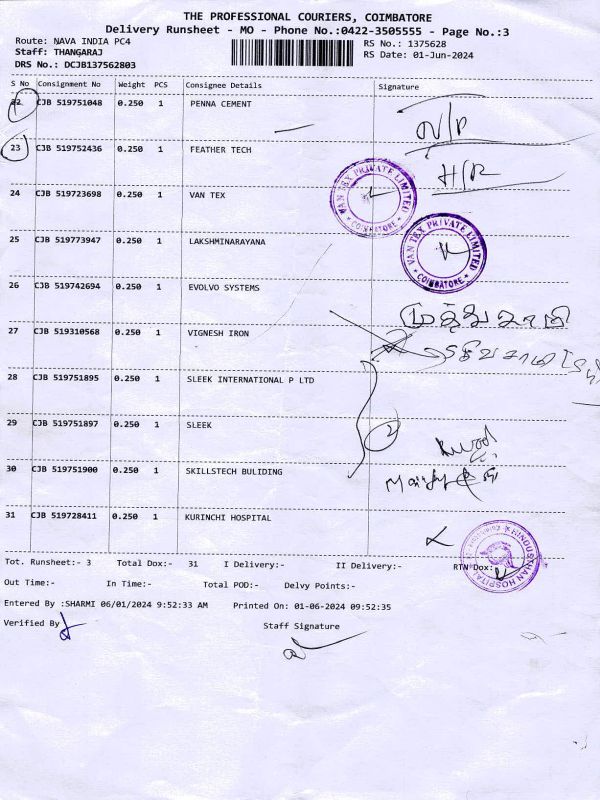 THE PROFESSIONAL COURIERS, COIMBATORE
Delivery Runsheet - MO - Phone No.:0422-3505555 - Page No.:3
Route: NAVA INDIA PC4
RS No.: 1375628
Staff: THANGARAJ
RS Date: 01-Jun-2024
DRS No.: DCJB137562803
S No Consignment No Weight PCS Consignee Details Signature
22 CJB 519751048 0.250 1 PENNA CEMENT
23 CJB 519752436 0.250 1 FEATHER TECH
H/R
24 CJB 519723698 0.250 1 VAN TEX
VAN TEX PRIVATE LIMITED
COIMBATORE
25 CJB 519773947 0.250 1 LAKSHMINARAYANA
VAN TEX PRIVATE LIMITED
COIMBATORE
26 CJB 519742694 0.250 1 EVOLVO SYSTEMS
27 CJB 519310568 0.250 1 VIGNESH IRON
28 CJB 519751895 0.250 1 SLEEK INTERNATIONAL P LTD
29 CJB 519751897 0.250 1 SLEEK
2
30 CJB 519751900 0.250 1 SKILLSTECH BULIDING
31 CJB 519728411 0.250 1 KURINCHI HOSPITAL
HINDUSTHAN HOSPITAL
Tot. Runsheet:- 3 Total Dox:- 31 I Delivery:- II Delivery:- RTN Dox:
Out Time:- In Time:- Total POD:- Delvy Points:-
Entered By :SHARMI 06/01/2024 9:52:33 AM Printed On: 01-06-2024 09:52:35
Verified By
Staff Signature